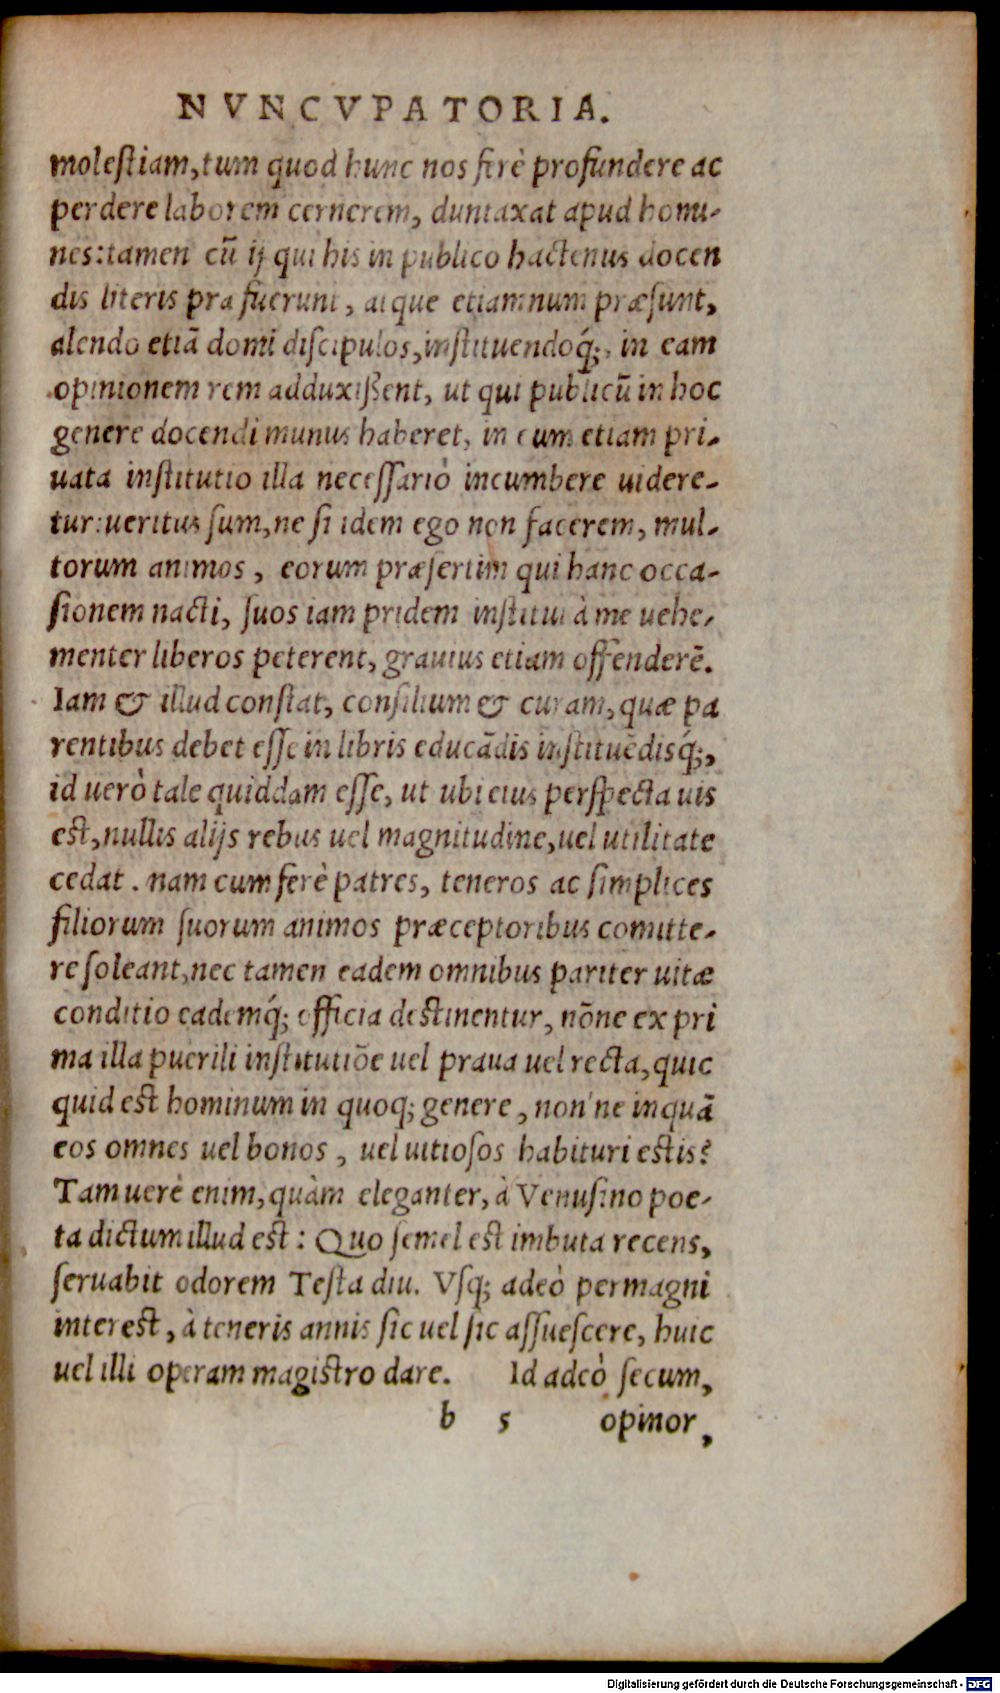 NVNCVPATORIA.
molestiam, tum quod hunc nos ferè profundere ac
perdere laborem cernerem, duntaxat apud homi-
nes: tamen cũ ij qui his in publico hactenus docen
dis literis præfuerunt, atque etiamnum præsunt,
alendo etiã domi discipulos, instituendoq́;, in eam
opinionem rem adduxißent, ut qui publicũ in hoc
genere docendi munus haberet, in eum etiam pri-
uata institutio illa necessariò incumbere uidere-
tur: ueritus sum, ne si idem ego non facerem, mul-
torum animos, eorum præsertim qui hanc occa-
sionem nacti, suos iam pridem institui à me uehe-
menter liberos peterent, grauius etiam offenderẽ.
Iam & illud constat, consilium & curam, quæ pa
rentibus debet esse in libris educãdis instituẽdisq́;,
id uerò tale quiddam esse, ut ubi eius perspecta uis
est, nullis alijs rebus uel magnitudine, uel utilitate
cedat. nam cum ferè patres, teneros ac simplices
filiorum suorum animos præceptoribus comitte-
re soleant, nec tamen eadem omnibus pariter uitæ
conditio eademq́; officia destinentur, nõne ex pri
ma illa puerili institutiõe uel praua uel recta, quic
quid est hominum in quoq; genere, non'ne inquã
eos omnes uel bonos, uel uitiosos habituri estis?
Tam uerè enim, quàm eleganter, à Venusino poe-
ta dictum illud est: Quo semel est imbuta recens,
seruabit odorem Testa diu. Vsq; adeò permagni
interest, à teneris annis sic uel sic assuescere, huic
uel illi operam magistro dare. Id adeò secum,
b 5 opinor,
Digitalisierung gefördert durch die Deutsche Forschungsgemeinschaft - DFG